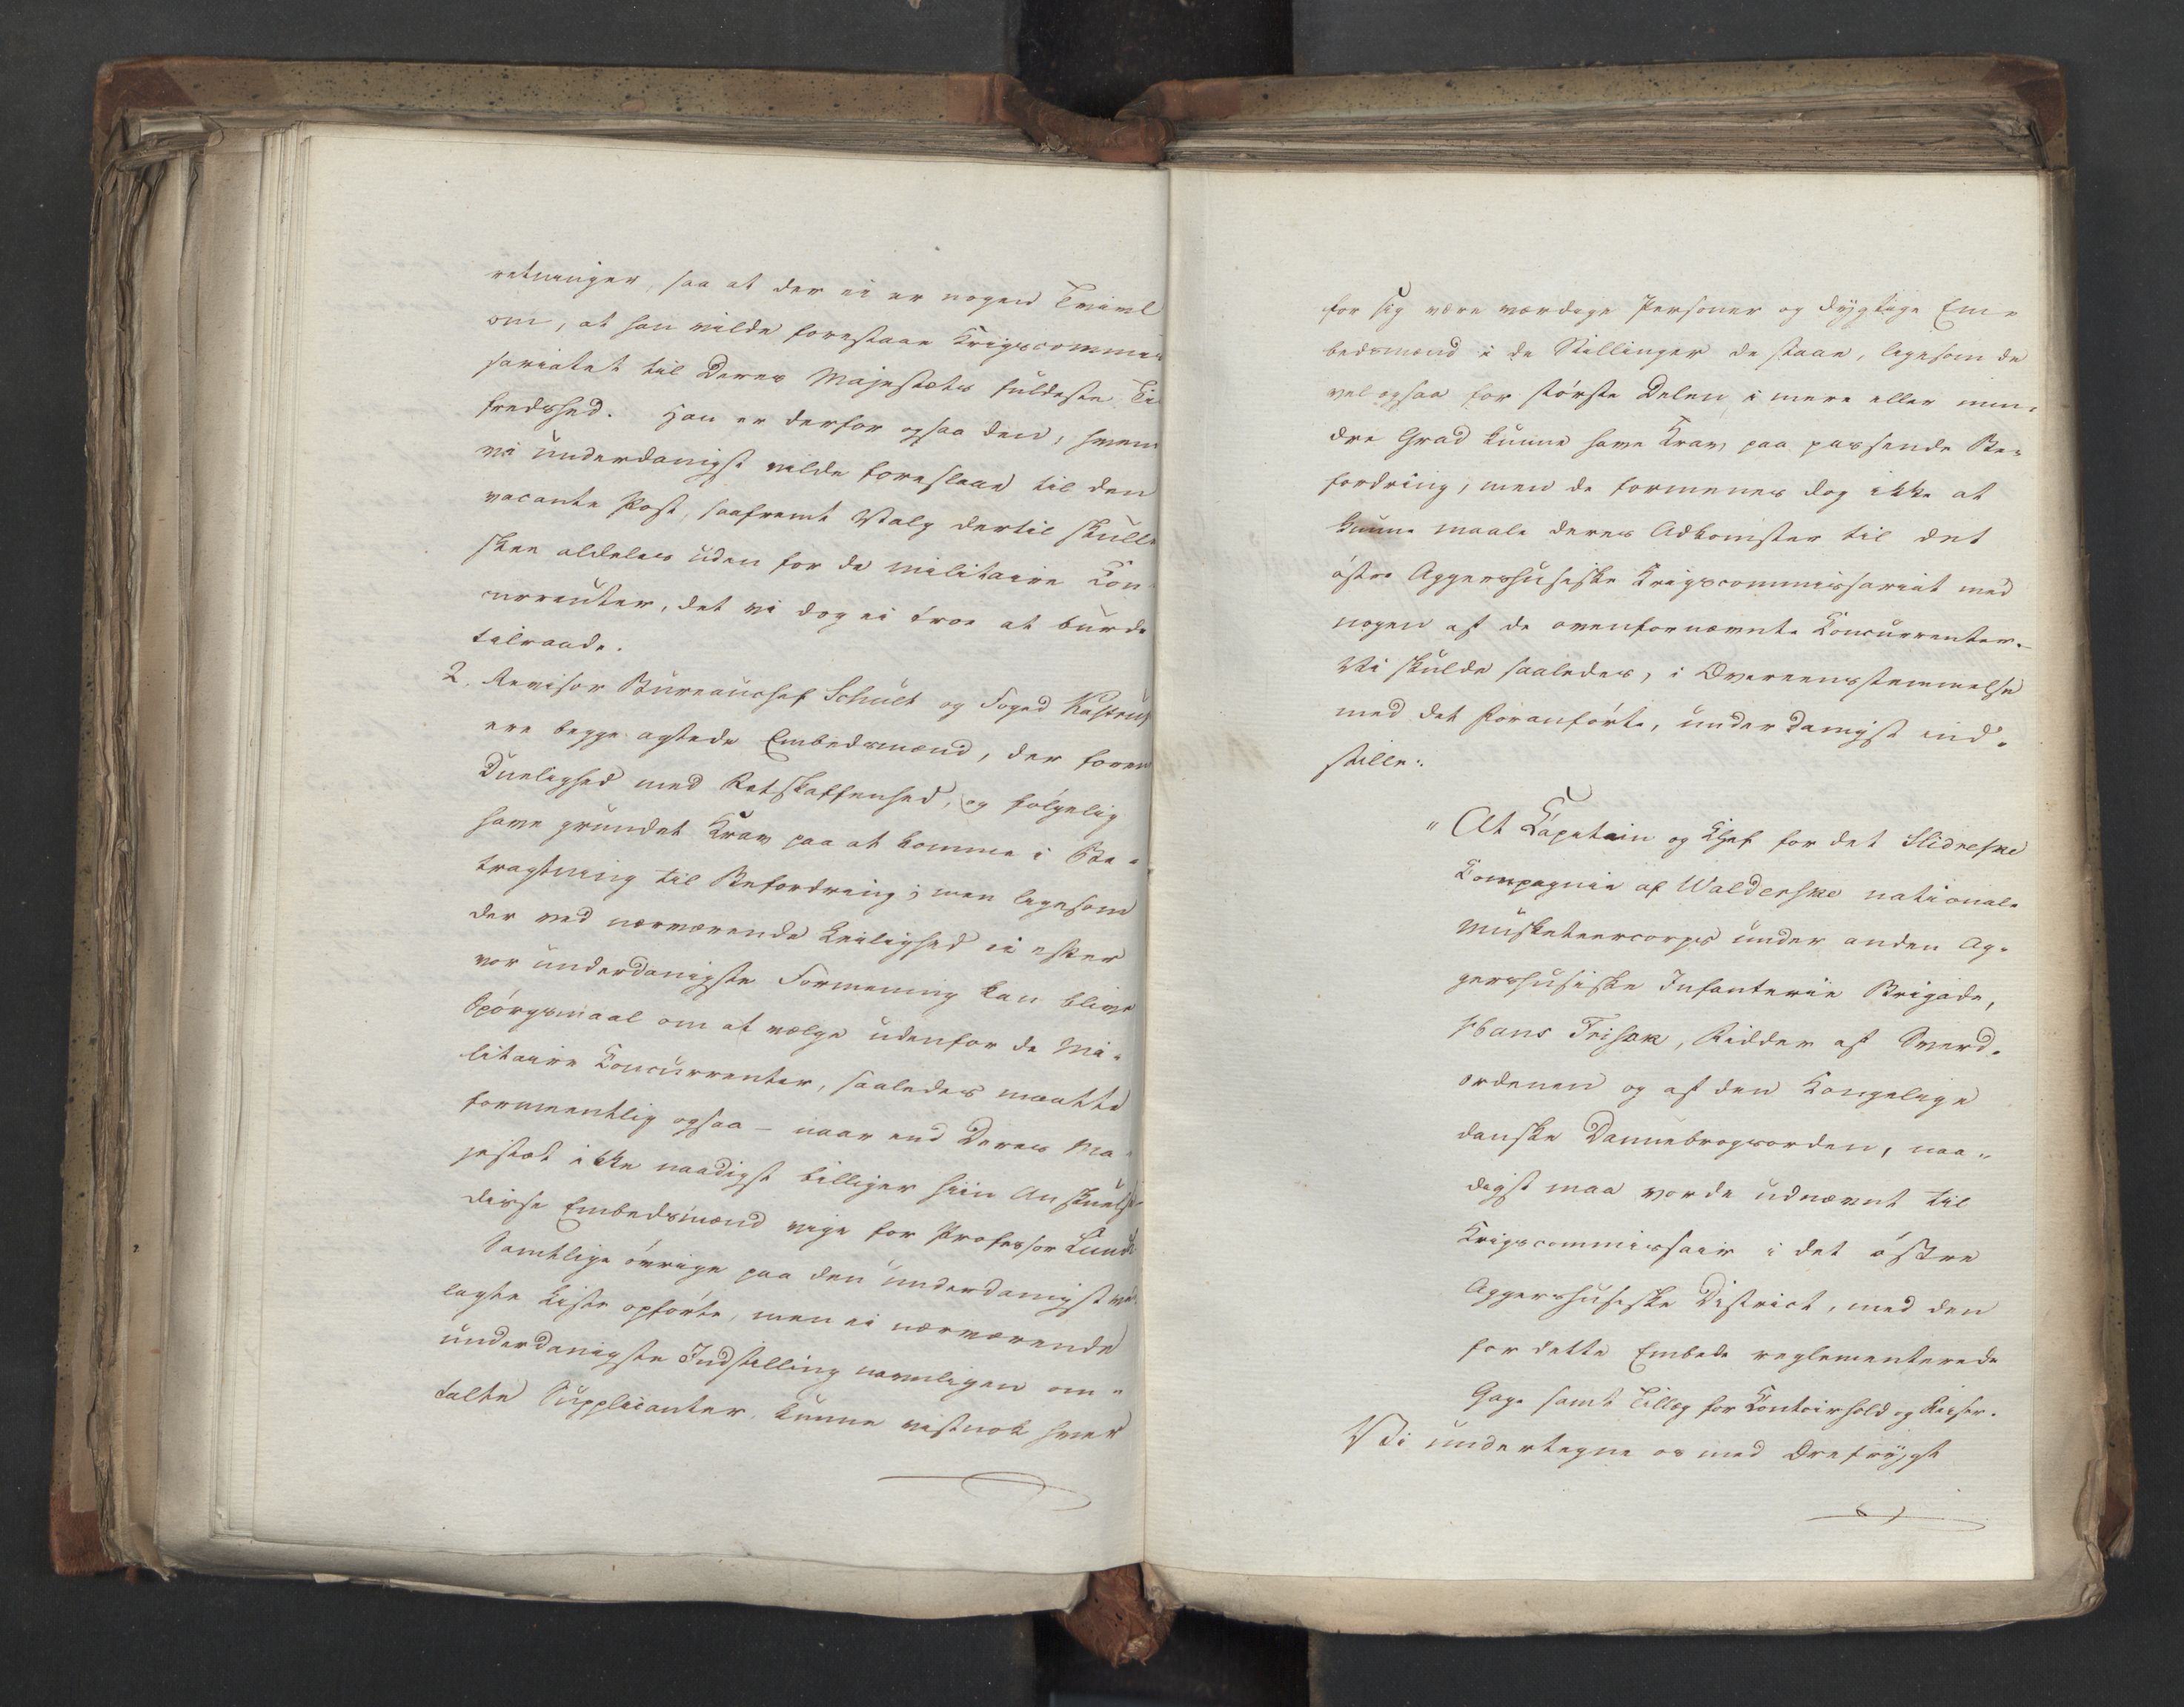 retninger, saa at der ei er nogen Tvivl
om, at han vilde forestaae Krigscommis
sariatet til Deres Majestæts fuldeste Til
fredshed. Han er derfor ogsaa den, hvem
vi underdanigst vilde foreslaae til den
vacante Post, saafremt Valg dertil skulle
skee aldeles uden for de militaire Con
currenter, det vi dog ei troe at burde
tilraade.
2. Revisor Bureauchef Schult og Foged Kastrup
ere begge agtede Embedsmænd, der forene
Duelighed med Retskaffenhed, og følgelig
have grundet Krav paa at komme i Be-
tragtning til Befordring; men ligesom
der ved nærværende Leilighed ei efter
vor underdanigste Formening kan blive
Spørgsmaal om at vælge udenfor de Mi-
litaire Concurrenter, saaledes maatte
formeentlig ogsaa - naar end Deres Ma-
jestæt ikke naadigst billiger hiin Anskuelse
disse Embedsmænd vige for Professor Lundh
Samtlige øvrige paa den underdanigst ved
lagte Liste opførte, men ei nærværende
underdanigste Indstilling navnligen om-
talte Supplicanter, kunne vistnok hver
for sig være værdige Personer og dygtige Em-
bedsmænd i de Stillinger de staae, ligesom de
vel ogsaa for største Delen i mere eller min-
dre Grad kunne have Krav paa passende Be-
fordring; men de formenes dog ikke at
kunne maale deres Adkomster til det
østre Aggershusiske Krigscommissariat med
nogen af de ovenfornævnte Concurrenter.
Vi skulde saaledes, i Overeensstemmelse
med det foranførte, underdanigst ind-
stille:
"At Capitain og Chef for det Slidreske
Compagnie af Walderske nationale
Musketeercorps under anden Ag-
gershusiske Infanterie Brigade,
Hans Frisak, Ridder af Sværd-
ordenen og af den Kongelige
danske Dannebrogsorden, naa-
digst maa vorde udnævnt til
Krigscommissair i det østre
Aggershusiske District, med den
for dette Embede reglementerede
Gage samt Tillæg for Contoirhold og Reiser.
Vi undertegne os med Ærefrygt